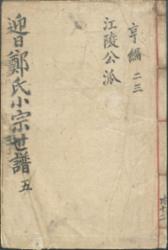 亨編 二三
江陵公派
迎日鄭氏小宗世譜 五